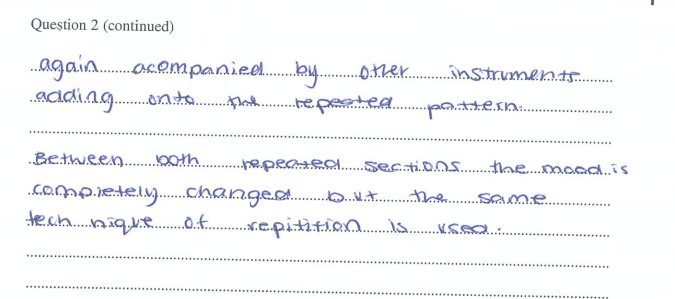 Question 2 (continued)
again acompanied by other instruments
adding onto the repeated pattern.
Between both repeated sections the mood is
completely changed but the same
technique of repitition is used.